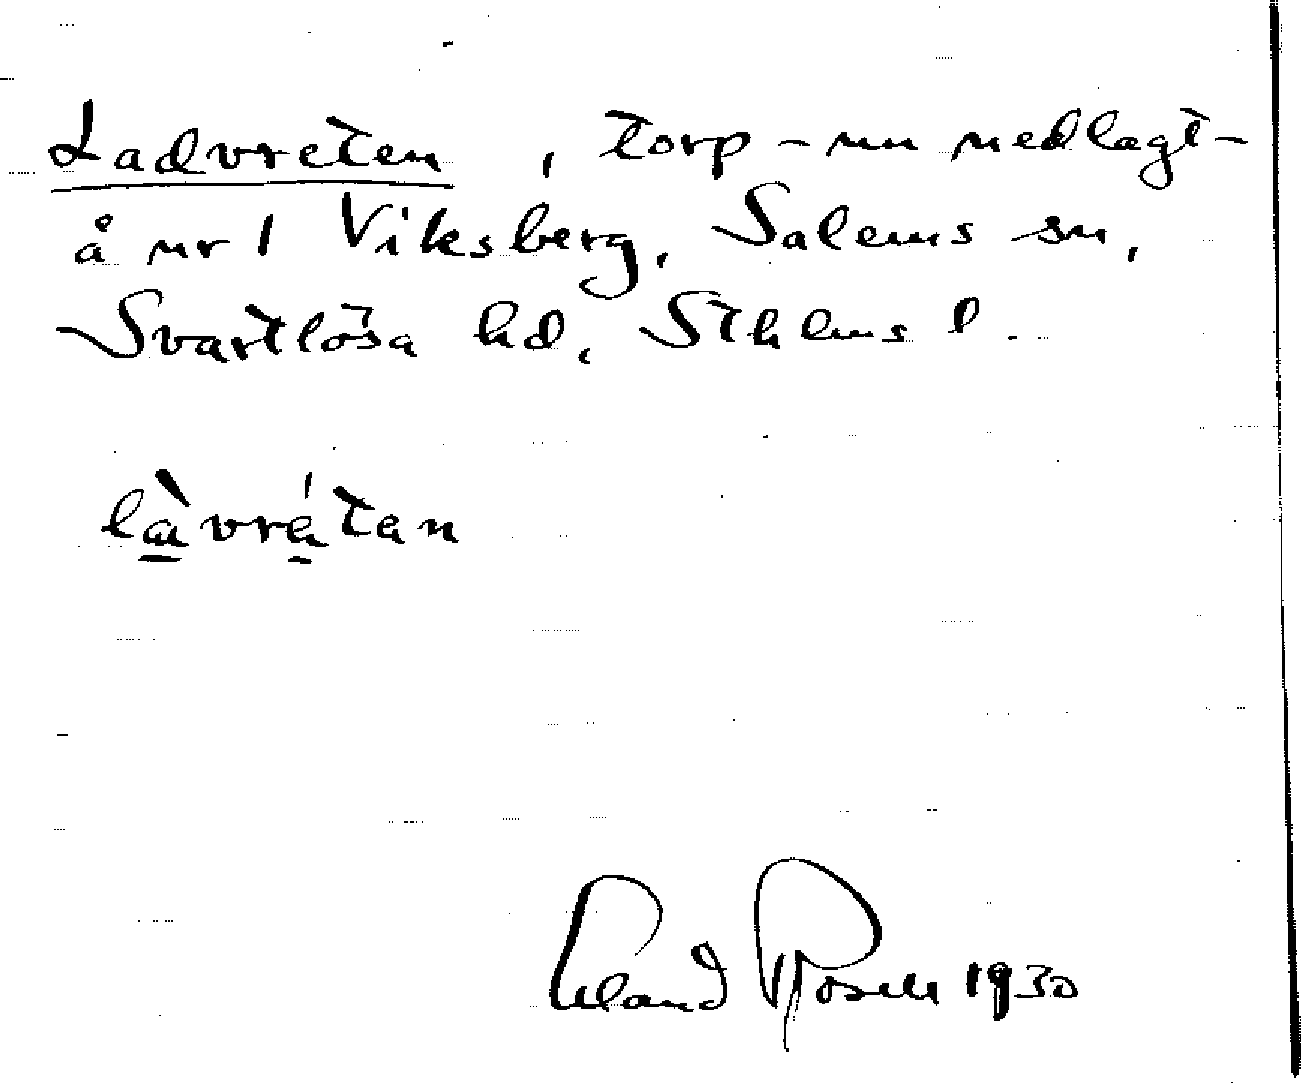 Ladvreten, torp - nu nedlagt -
å nr 1 Viksberg, Salems sn,
Svartlösa hd, Sthlms l.
làvrátan
Rosell 1930